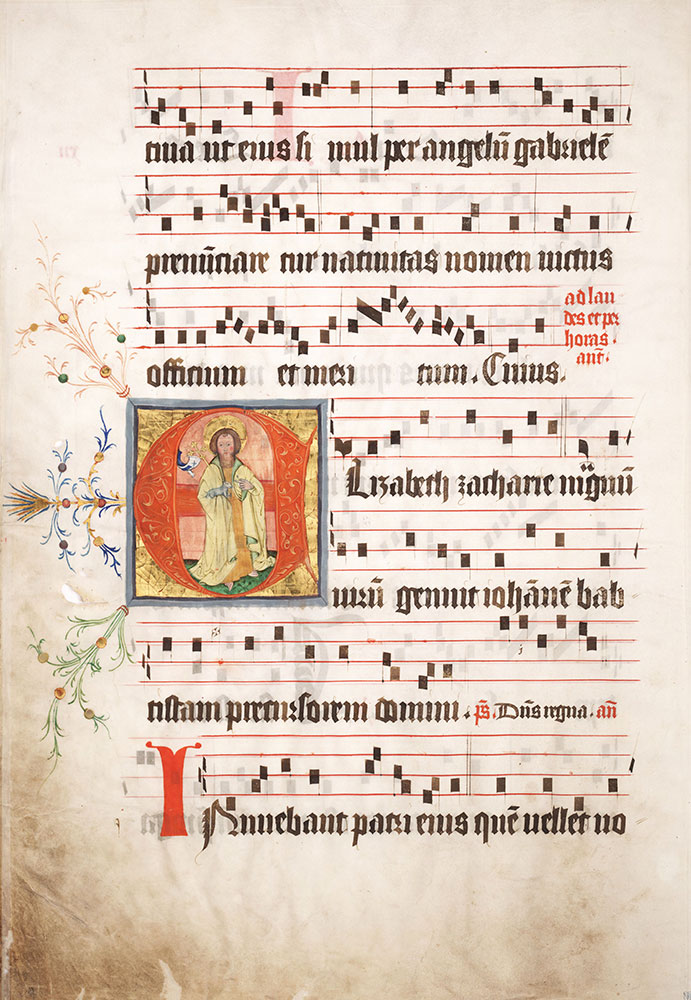 ciua ut eius si mul per angelū gabrielē
prenūciare cur natiuitas nomen uictus
officium et meri tum. Cuius.
ad lau
des et per
horas
ant.
ELizabeth zacharie magnū
uirū genuit iohānē bab
tistam precursorem domini. ps̄. Dn̄s regna. an̄
INnuebant patri eius quē uellet uo